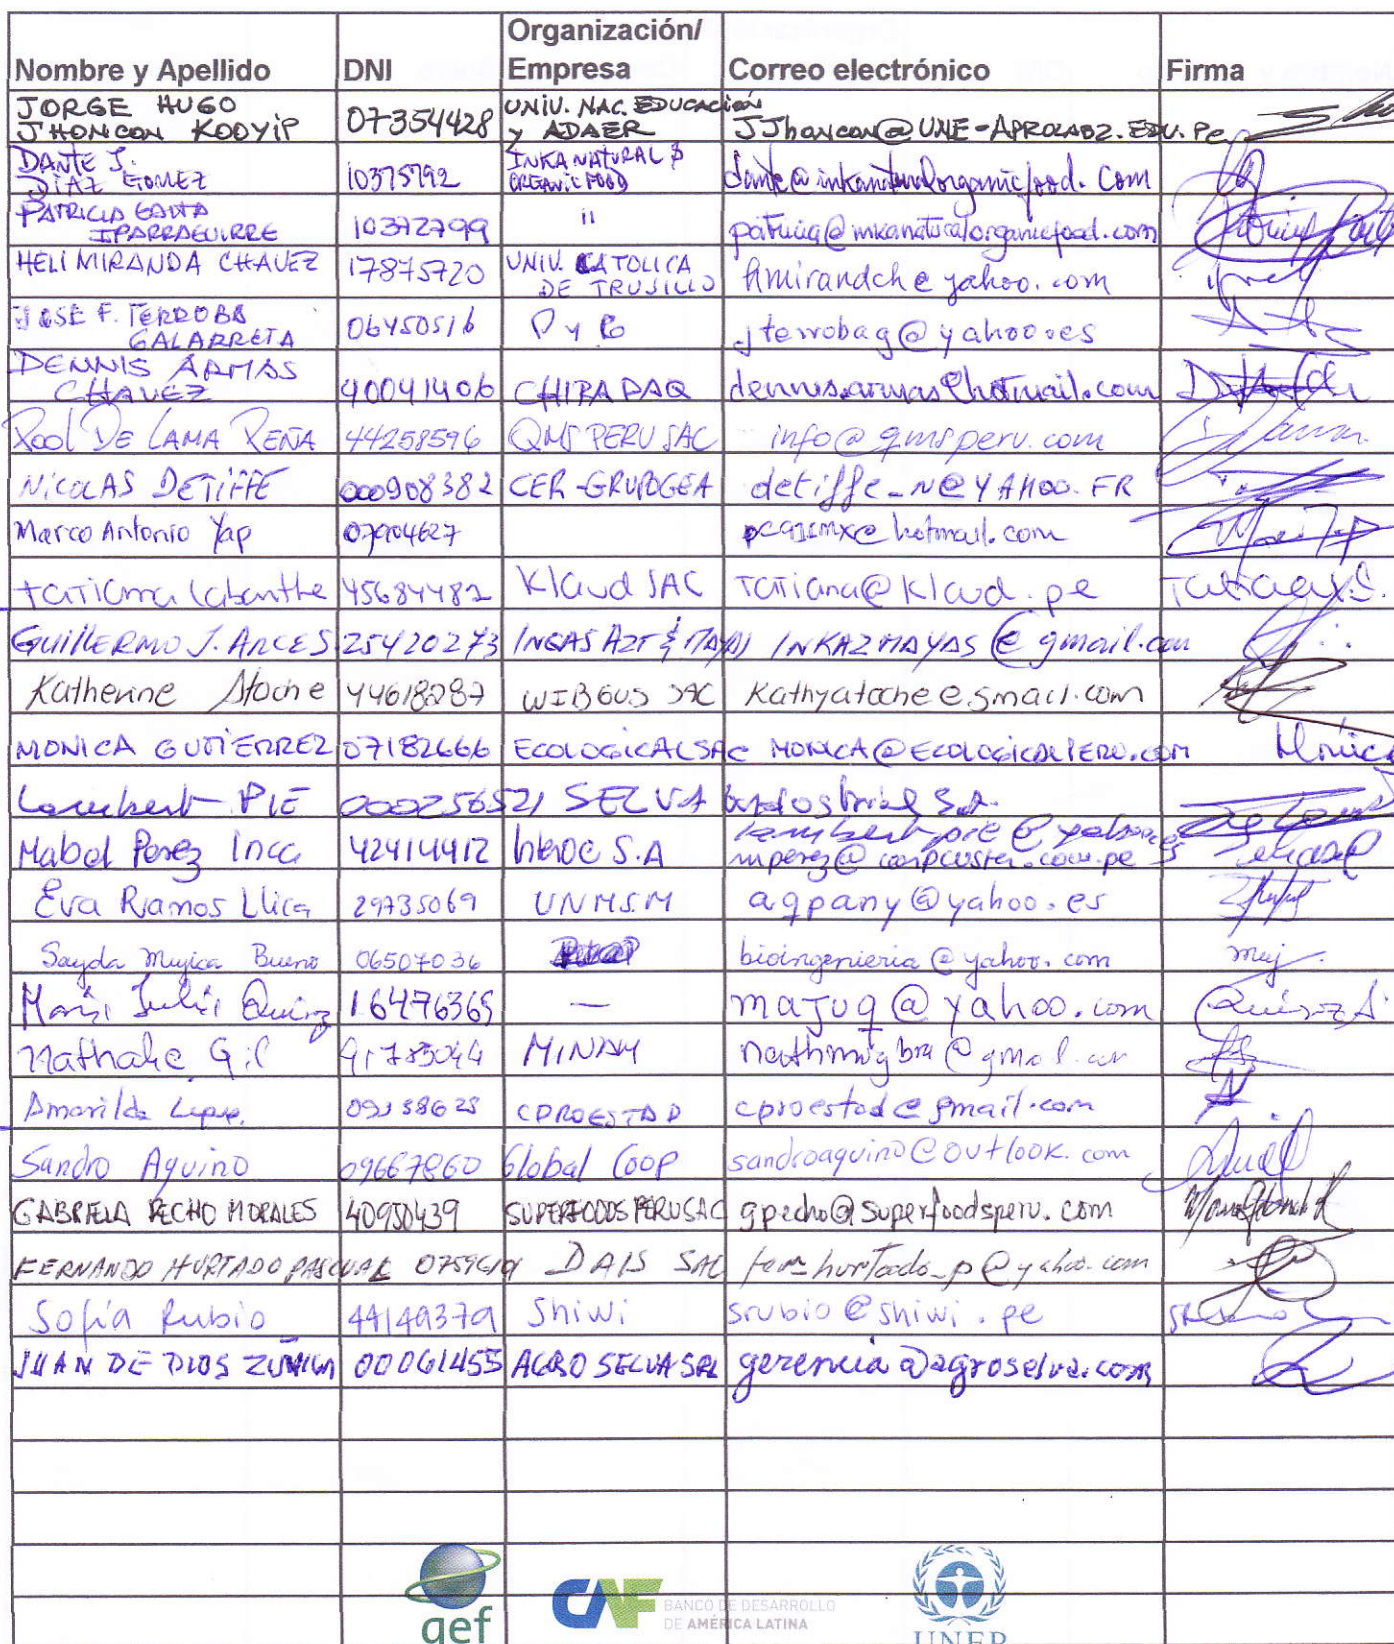 Nombre y Apellido DNI Organización/ Empresa Correo electrónico Firma
JORGE HUGO JHONCON KOOYIP 07354428 UNIV. NAC. EDUCACIÓN Y ADAER
DANTE J. DIAZ GOMEZ 10375792 INKA NATURAL & ORGANIC FOOD dante@inkanaturalorganicfood.com
PATRICIA IPARRAGUIRRE 10372799 " patricia@inkanaturalorganicfood.com
HELI MIRANDA CHAVEZ 17875720 UNIV. CATOLICA DE TRUJILLO hmirandch@yahoo.com
JOSÉ F. TERROBA GALARRETA 06450516 jterrobag@yahoo.es
DENNIS ARMAS CHAVEZ 40041406 CHIRAPAQ dennis.armas@hotmail.com
Pool DE LAMA PEÑA 44258596 QMS PERU SAC info@qmsperu.com
NICOLAS DETIFFE 000908382 CER-GRUPOGEA detiffe_N@YAHOO.FR
Marco Antonio Yap 07904627 @hotmail.com
Tatiana 45684482 Klaud SAC Tatiana@Klaud.pe
GUILLERMO J. ARCES 25420273 INCAS AZT & MAYAS INKAZMAYAS@gmail.com
Katherine Atoche 44618287 WIBGUS SAC Kathyatoche@gmail.com
MONICA GUTIERREZ 07182666 ECOLOGICAL SAC MONICA@ECOLOGICALPERU.COM Monica
Lambert PIE 000256521 SELVA Industrial S.A.
Mabel Perez Inca 42414412 S.A
Eva Ramos Llica 29735069 UNMSM aqpany@yahoo.es
Sayda Mujica Bueno 06507036 bioingenieria@yahoo.com muj
María Julia Quiroz 16476365 — majuq@yahoo.com Quiroz
Nathalie Gil MINAM
Amarilda 09158628 CPROESTAD cproestad@gmail.com
Sandro Aquino 09667860 Global Coop sandroaquino@outlook.com
GABRIELA PECHO MORALES 40950439 SUPERFOODS PERU SAC gpecho@superfoodsperu.com
FERNANDO HURTADO PASCUAL DAIS SAC
Sofía Rubio 44149379 Shiwi srubio@shiwi.pe
JUAN DE DIOS ZUÑIGA 00061455 AGRO SELVA SRL gerencia@agroselva.com
gef CAF BANCO DE DESARROLLO DE AMÉRICA LATINA UNEP